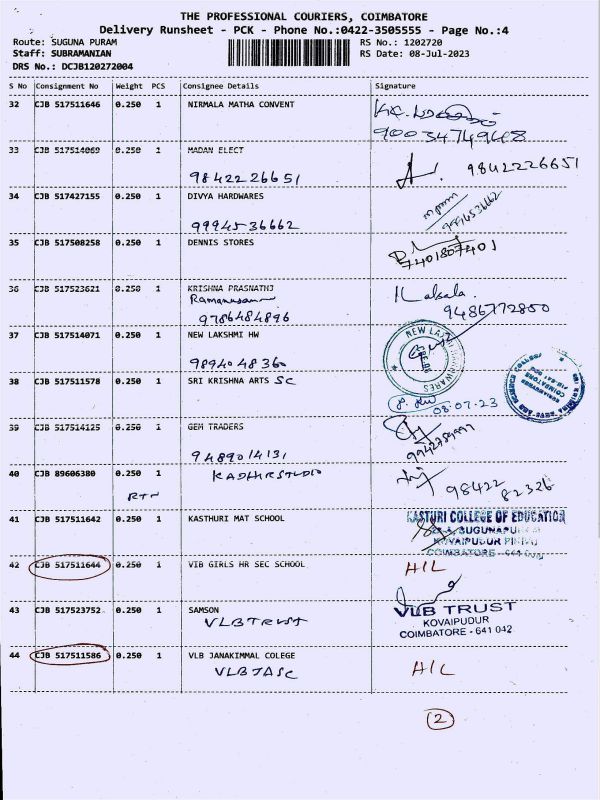 THE PROFESSIONAL COURIERS, COIMBATORE
Delivery Runsheet - PCK - Phone No.:0422-3505555 - Page No.:4
Route: SUGUNA PURAM RS No.: 1202720
Staff: SUBRAMANIAN RS Date: 08-Jul-2023
DRS No.: DCJB120272004
S No Consignment No Weight PCS Consignee Details Signature
32 CJB 517511646 0.250 1 NIRMALA MATHA CONVENT
9003474968
33 CJB 517514069 0.250 1 MADAN ELECT
9842226651 9842226651
34 CJB 517427155 0.250 1 DIVYA HARDWARES
9994536662 9994536662
35 CJB 517508258 0.250 1 DENNIS STORES
7401807401
36 CJB 517523621 0.250 1 KRISHNA PRASNATHJ
9786484896 9486772850
37 CJB 517514071 0.250 1 NEW LAKSHMI HW
9894048360
38 CJB 517511578 0.250 1 SRI KRISHNA ARTS SC
08.07.23
39 CJB 517514125 0.250 1 GEM TRADERS
9489014131
40 CJB 89606380 0.250 1 KADHIRSTUDIO
RTN 98422 82326
41 CJB 517511642 0.250 1 KASTHURI MAT SCHOOL KASTURI COLLEGE OF EDUCATION
42 CJB 517511644 0.250 1 VIB GIRLS HR SEC SCHOOL H/L
43 CJB 517523752 0.250 1 SAMSON VLB TRUST
VLBTRUST KOVAIPUDUR
COIMBATORE - 641 042
44 CJB 517511586 0.250 1 VLB JANAKIMMAL COLEGE H/L
VLBJASC
2